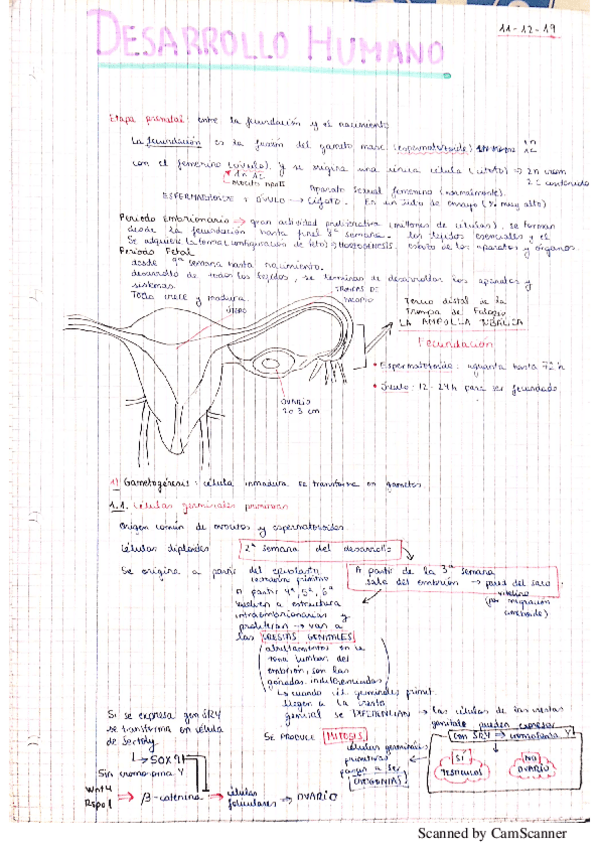 11-12-19
DESARROLLO HUMANO
Etapa prenatal: entre la fecundación y el nacimiento
La fecundación es la fusión del gameto masc (espermatozoide)
con el femenino (óvulo). Y se origina una única célula (cigoto) → 2n crom
Aparato sexual femenino (normalmente).
ESPERMATOZOIDE + ÓVULO → Cigoto. En un tubo de ensayo (% muy alto)
Periodo Embrionario → gran actividad proliferativa (millones de células). se forman
desde la fecundación hasta final 8ª semana. los tejidos esenciales y el
Se adquiere la forma (configuración de feto) → MORFOGENESIS. esbozo de los aparatos y órganos.
Periodo Fetal
desde 9ª semana hasta nacimiento.
desarrollo de todos los tejidos, se terminan de desarrollar los aparatos y
sistemas.
Todo crece y madura
TROMPAS DE
FALOPIO
ÚTERO
Tercio distal de la
Trompa de Falopio
LA AMPOLLA TUBÁRICA
Fecundación
• Espermatozoide: aguanta hasta 72 h
• Óvulo: 12-24h para ser fecundado
OVARIO
2 o 3 cm
1) Gametogénesis: célula inmadura se transforma en gametos
1.1. Células germinales primitivas
Origen común de óvulos y espermatozoides
Células diploides 2ª semana del desarrollo
Se origina a partir del epiblasto
A partir de la 3ª semana
sale del embrión → pared del saco
vitelino
(por migración
ameboide)
A partir 4ª, 5ª, 6ª
vuelven a estructura
intraembrionarias y
proliferan → van a
las CRESTAS GENITALES
(abultamientos en la
zona lumbar del
embrión, son las
gónadas indiferenciadas)
↳ cuando cél. germinales primit.
llegan a la cresta
genital se DIFERENCIAN → las células de las crestas
genitales pueden expresar
gen SRY → cromosoma Y
SÍ
TESTÍCULOS
NO
OVARIO
Si se expresa gen SRY
se transforma en célula
de Sertoly
↳ SOX 9
SE PRODUCE MITOSIS
células germinales
primitivas
pasan a ser
GOGONIAS
Sin cromosoma Y
Wnt4
Rspo1 → β-catenina → células
foliculares → OVARIO
Scanned by CamScanner